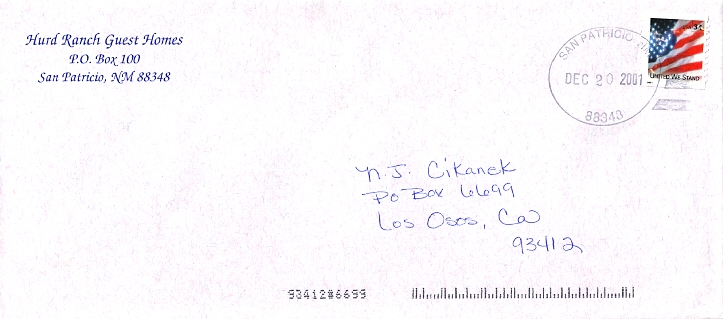 Hurd Ranch Guest Homes
P.O. Box 100
San Patricio, NM 88348
SAN PATRICIO NM
DEC 20 2001
88348
34
UNITED WE STAND
N.J. Cikanek
PO Box 6699
Los Osos, Ca
93412
93412#6699